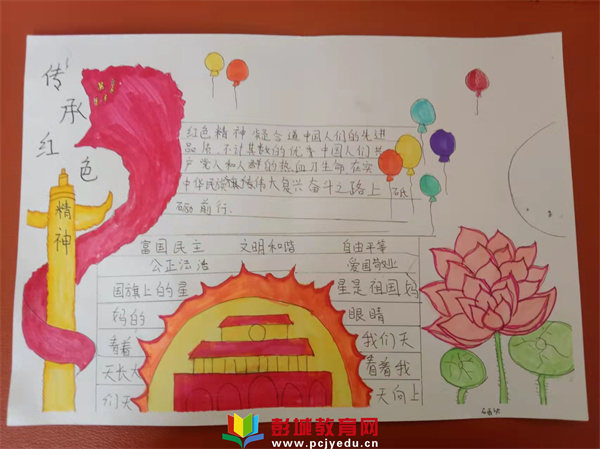 传承红色
精神
红色精神凝合道中国人们的先进
品质,不计其数的优秀中国人们共
产党人和人群的热血乃生命,在实
中华民族伟大复兴奋斗之路上 砥
砺前行.
富国民主 文明和谐 自由平等
公正法治 爱国敬业
国旗上的星 星是祖国妈
妈的 眼睛
看着 我们天
天长大 看着我
们天 天向上
彭城教育网
www.pcjyedu.cn